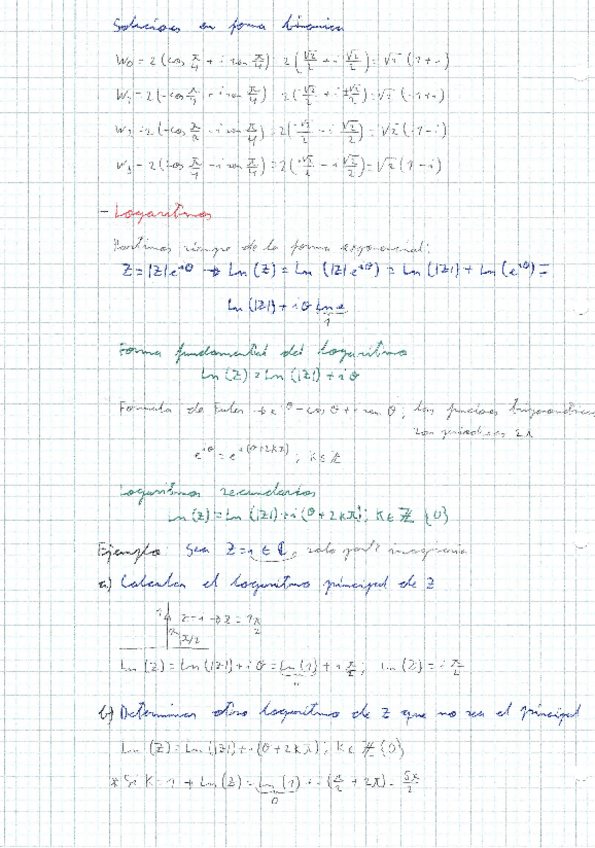 Soluciones en forma binómica
W₀ = 2 (cos π/4 + i sen π/4) = 2 (√2/2 + i √2/2) = √2 (1 + i)
W₁ = 2 (-cos π/4 + i sen π/4) = 2 (-√2/2 + i √2/2) = √2 (-1 + i)
W₂ = 2 (-cos π/4 - i sen π/4) = 2 (-√2/2 - i √2/2) = √2 (-1 - i)
W₃ = 2 (cos π/4 - i sen π/4) = 2 (√2/2 - i √2/2) = √2 (1 - i)
- Logaritmos
Partimos siempre de la forma exponencial:
Z = |Z| e^iθ → Ln (Z) = Ln (|Z| e^iθ) = Ln (|Z|) + Ln (e^iθ) =
Ln (|Z|) + i θ Ln e
1
Forma fundamental del logaritmo
Ln (Z) = Ln (|Z|) + i θ
Formula de Euler → e^iθ = cos θ + i sen θ ; las funciones trigonométricas
son periódicas 2π
e^iθ = e^i(θ+2kπ) ; K ∈ Z
Logaritmos secundarios
Ln (Z) = Ln (|Z|) + i (θ + 2kπ) ; K ∈ Z {0}
Ejemplo: Sea Z = i ∈ C, solo parte imaginaria
a) Calcular el logaritmo principal de Z
Z = i → Z = 1 π/2
π/2
Ln (Z) = Ln (|Z|) + i θ = Ln (1) + i π/2 ; Ln (Z) = i π/2
b) Determinar otro logaritmo de Z que no sea el principal
Ln (Z) = Ln (|Z|) + i (θ + 2kπ) ; K ∈ Z {0}
* Si K = 1 → Ln (Z) = Ln (1) + i (π/2 + 2π) = 5π/2
0